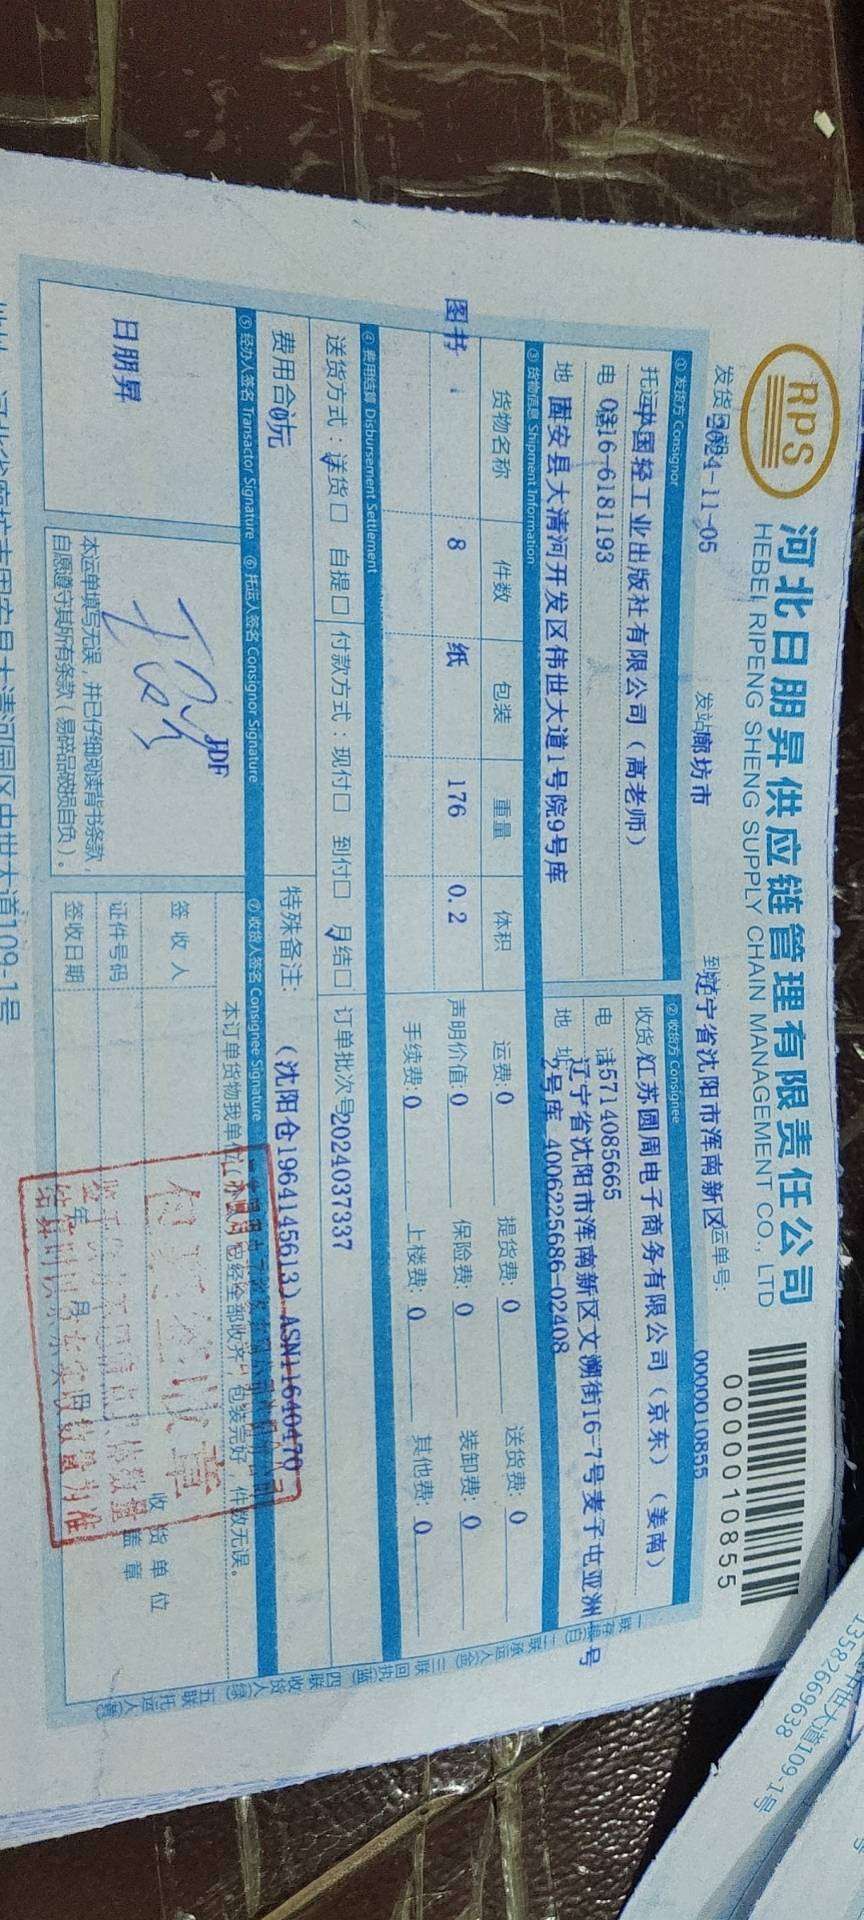 RPS
河北日朋昇供应链管理有限责任公司
HEBEI RIPENG SHENG SUPPLY CHAIN MANAGEMENT CO., LTD
0000010855
发货日期 2024-11-05 发站 廊坊市 到 辽宁省沈阳市浑南新区 运单号: 0000010855
① 发货方 Consignor
托运 中国轻工业出版社有限公司（高老师）
电 0316-6181193
地 固安县大清河开发区伟世大道1号院9号库
② 收货方 Consignee
收货 江苏圆周电子商务有限公司（京东）（姜南）
电 话 15714085665
地 址 辽宁省沈阳市浑南新区文溯街16-7号麦子屯亚洲一号
2号库 4006225686-02408
③ 货物信息 Shipment Information
货物名称 件数 包装 重量 体积
图书 8 纸 176 0.2
运费: 0 提货费: 0 送货费: 0
声明价值: 0 保险费: 0 装卸费: 0
手续费: 0 上楼费: 0 其他费: 0
④ 费用结算 Disbursement Settlement
送货方式：送货□ 自提□ 付款方式：现付□ 到付□ 月结□ 订单批次号 2024037337
费用合计 0 元 特殊备注： （沈阳仓1964145613）ASN11640470
⑤ 经办人签名 Transactor Signature ⑥ 托运人签名 Consignor Signature ⑦ 收货人签名 Consignee Signature
日朋昇
JDF
本运单填写无误，并已仔细阅读背书条款，
自愿遵守其所有条款（易碎品破损自负）。
本订单货物我单位（办理）已经全部收齐，包装完好，件数无误。
签收人
证件号码
签收日期 年 月 日
收货单位
盖章
一联存根(白) 二联承运人(金) 三联回执(蓝) 四联收货人(绿) 五联托运人(黄)
大道109-1号
世大道109-1号
13582669638